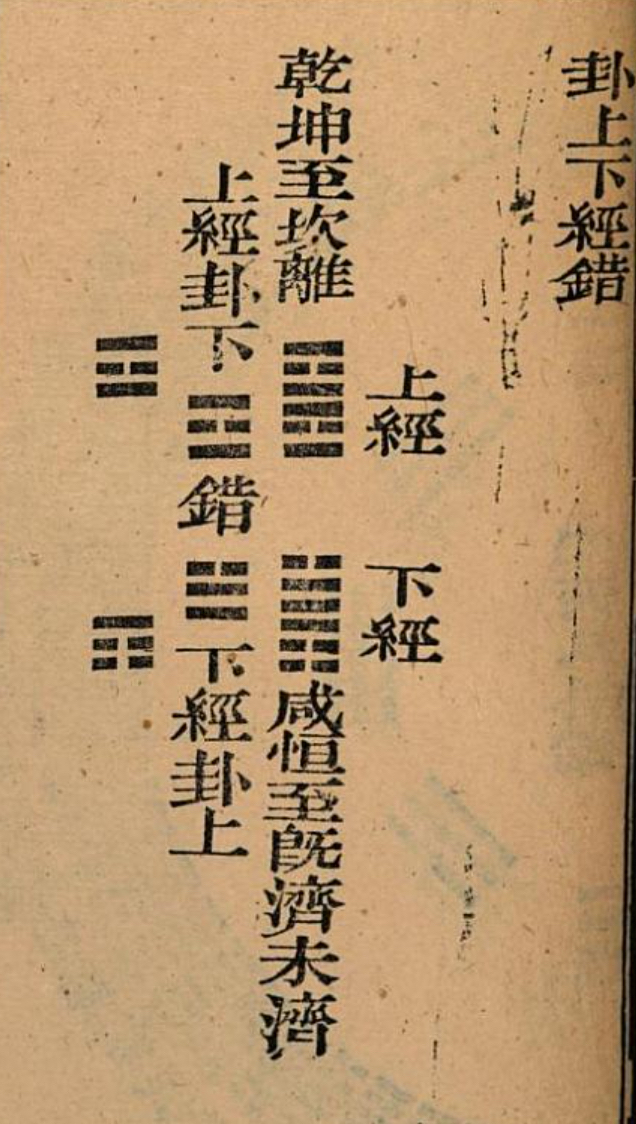 卦上下經錯
上經 下經
乾坤至坎離 咸恒至旣濟未濟
上經卦下 錯 下經卦上